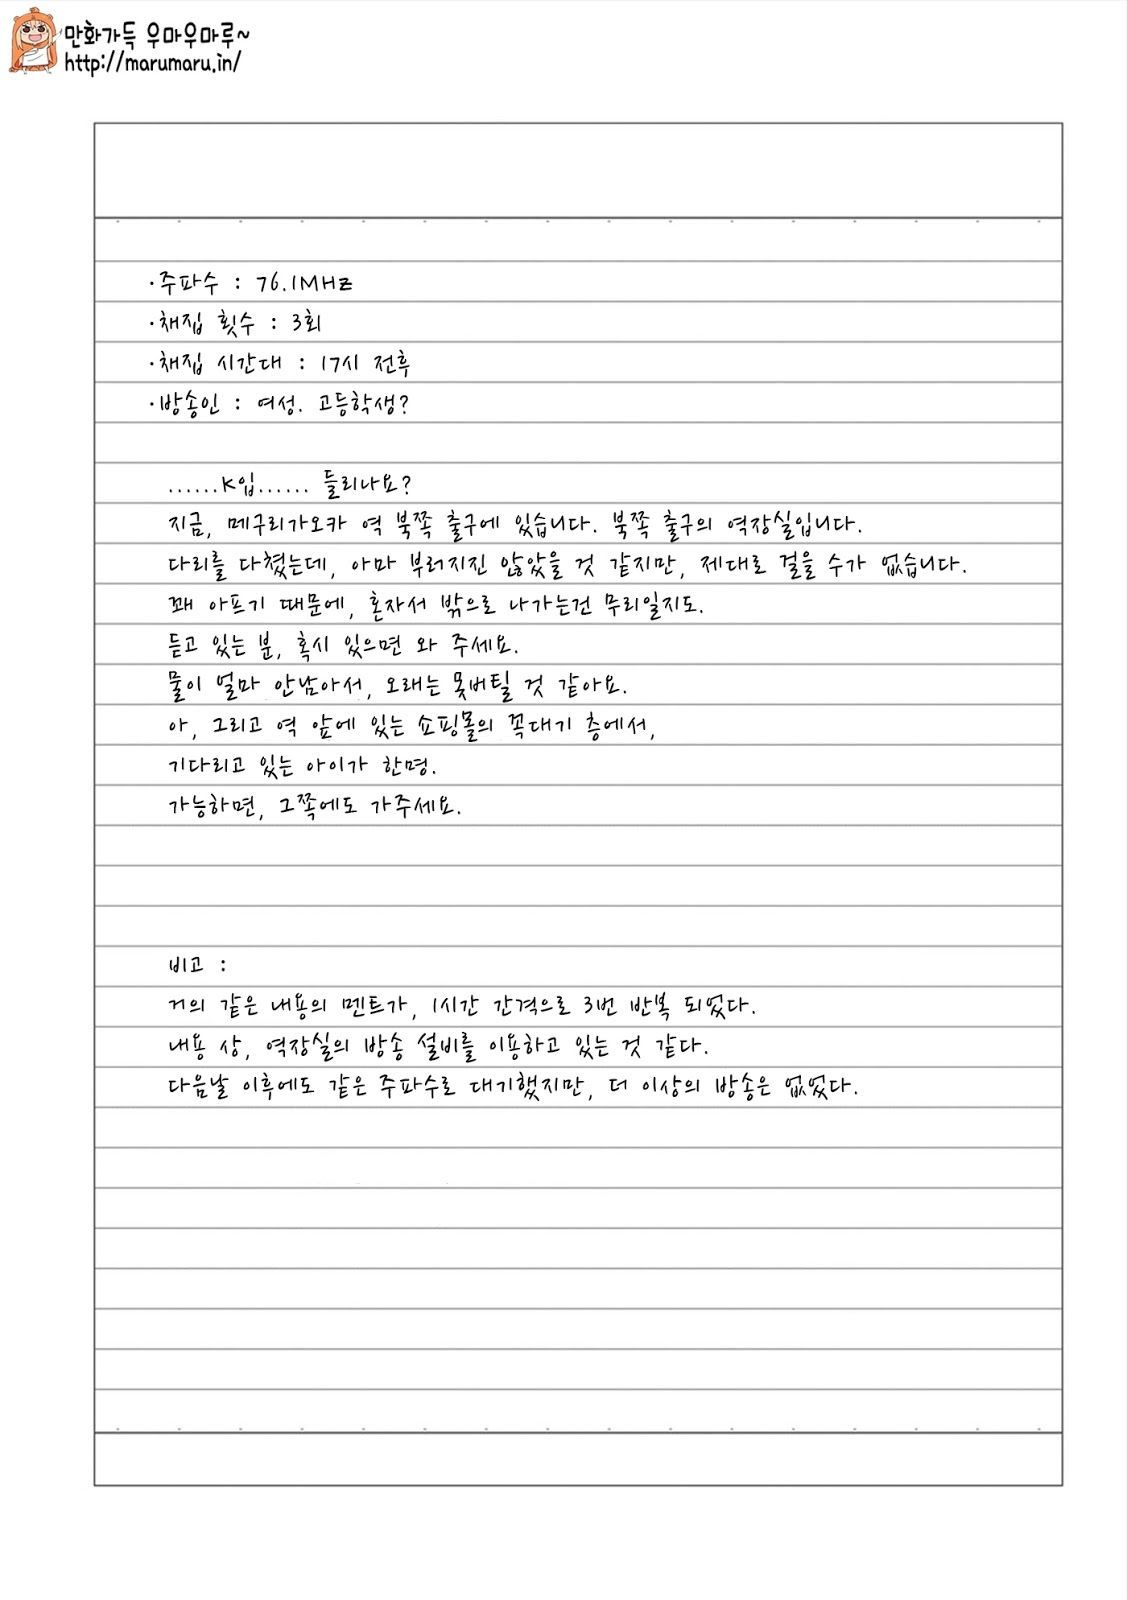 만화가득 우마우마루~
http://marumaru.in/
·주파수 : 76.1MHz
·채집 횟수 : 3회
·채집 시간대 : 17시 전후
·방송인 : 여성. 고등학생?
......K입...... 들리나요?
지금, 메구리가오카 역 북쪽 출구에 있습니다. 북쪽 출구의 역장실입니다.
다리를 다쳤는데, 아마 부러지진 않았을 것 같지만, 제대로 걸을 수가 없습니다.
꽤 아프기 때문에, 혼자서 밖으로 나가는건 무리일지도.
듣고 있는 분, 혹시 있으면 와 주세요.
물이 얼마 안남아서, 오래는 못버틸 것 같아요.
아, 그리고 역 앞에 있는 쇼핑몰의 꼭대기 층에서,
기다리고 있는 아이가 한명.
가능하면, 그쪽에도 가주세요.
비고 :
거의 같은 내용의 멘트가, 1시간 간격으로 3번 반복 되었다.
내용 상, 역장실의 방송 설비를 이용하고 있는 것 같다.
다음날 이후에도 같은 주파수로 대기했지만, 더 이상의 방송은 없었다.